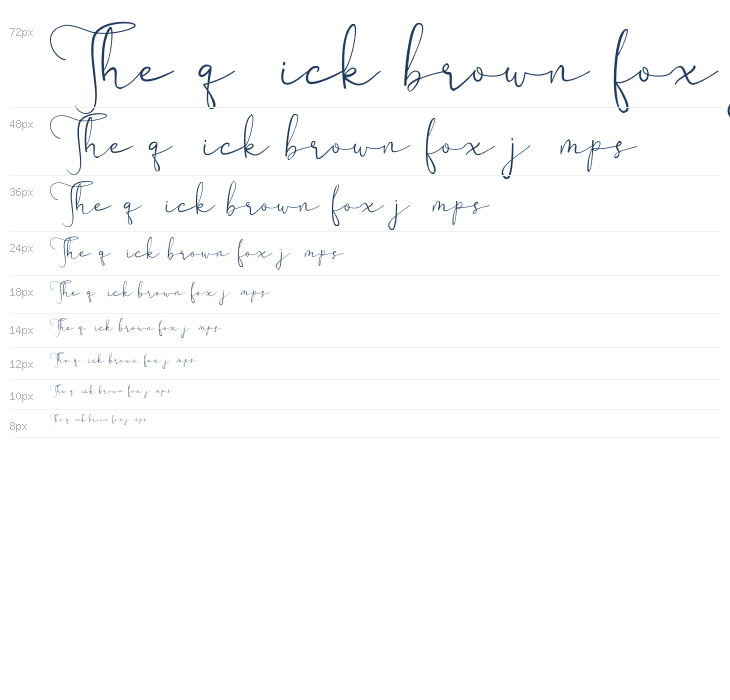 72px The q ick brown fox
48px The q ick brown fox j mps
36px The q ick brown fox j mps
24px The q ick brown fox j mps
18px The q ick brown fox j mps
14px The q ick brown fox j mps
12px The q ick brown fox j mps
10px The q ick brown fox j mps
8px The q ick brown fox j mps